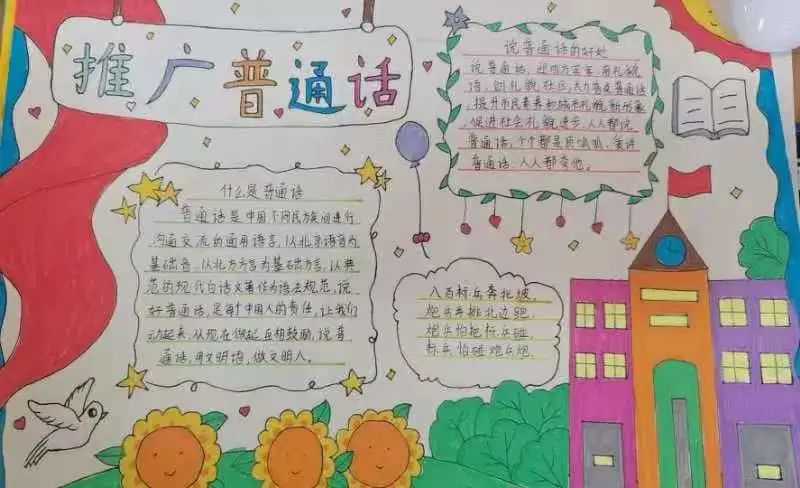 推广普通话
什么是普通话
普通话是中国不同民族间进行
沟通交流的通用语言,以北京语音为
基础音,以北方方言为基础方言,以典
范的现代白话文著作为语法规范,说
好普通话,是每个中国人的责任,让我们
动起来,从现在做起互相鼓励,说普
通话,用文明语,做文明人。
说普通话的好处
说普通话,迎四方宾客,用礼貌
语,创礼貌社区,大力普及普通话,
提升市民素养和城市礼貌新形象
促进社会礼貌进步,人人都说
普通话,个个都是
普通话,人人都夸他。
八百标兵奔北坡,
炮兵并排北边跑,
炮兵怕把标兵碰,
标兵怕碰炮兵炮